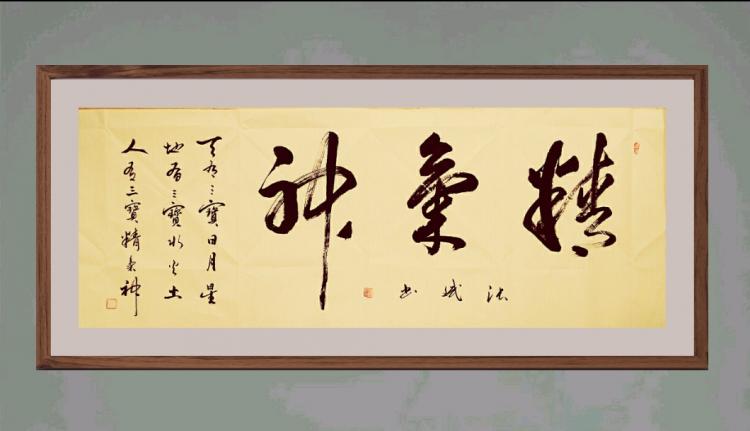 精氣神
斌书
天有三寶日月星
地有三寶水火土
人有三寶精氣神